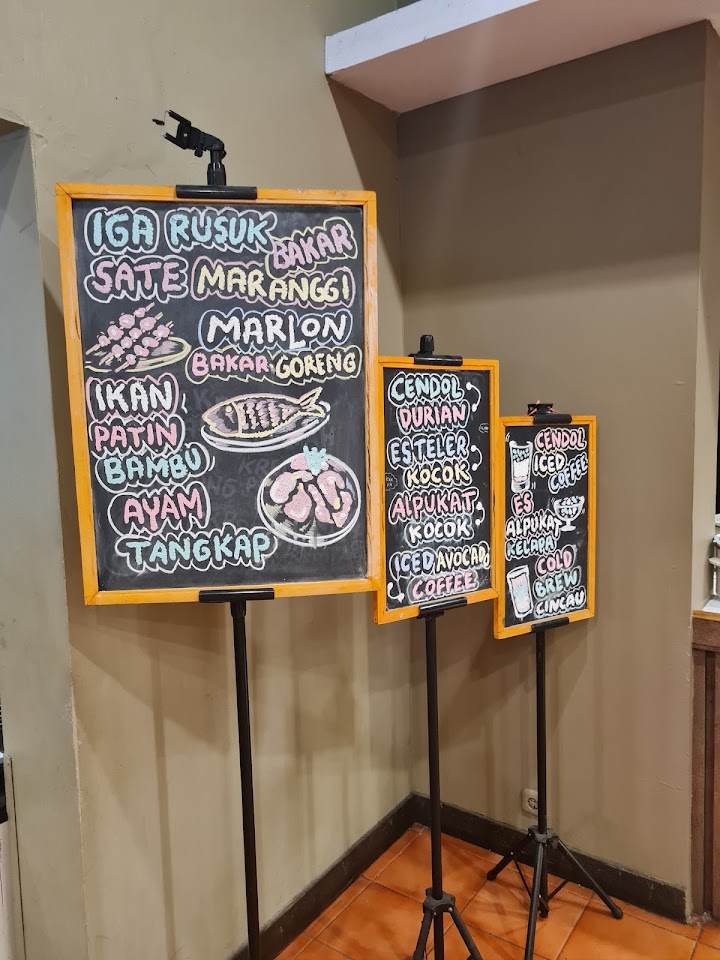 IGA RUSUK BAKAR
SATE MARANGGI
MARLON
BAKAR GORENG
IKAN
PATIN
BAMBU
AYAM
TANGKAP
CENDOL
DURIAN
ESTELER
KOCOK
ALPUKAT
KOCOK
ICED AVOCADO
COFFEE
CENDOL
ICED
COFFEE
ES
ALPUKAT
KELAPA
COLD
BREW
CINCAU